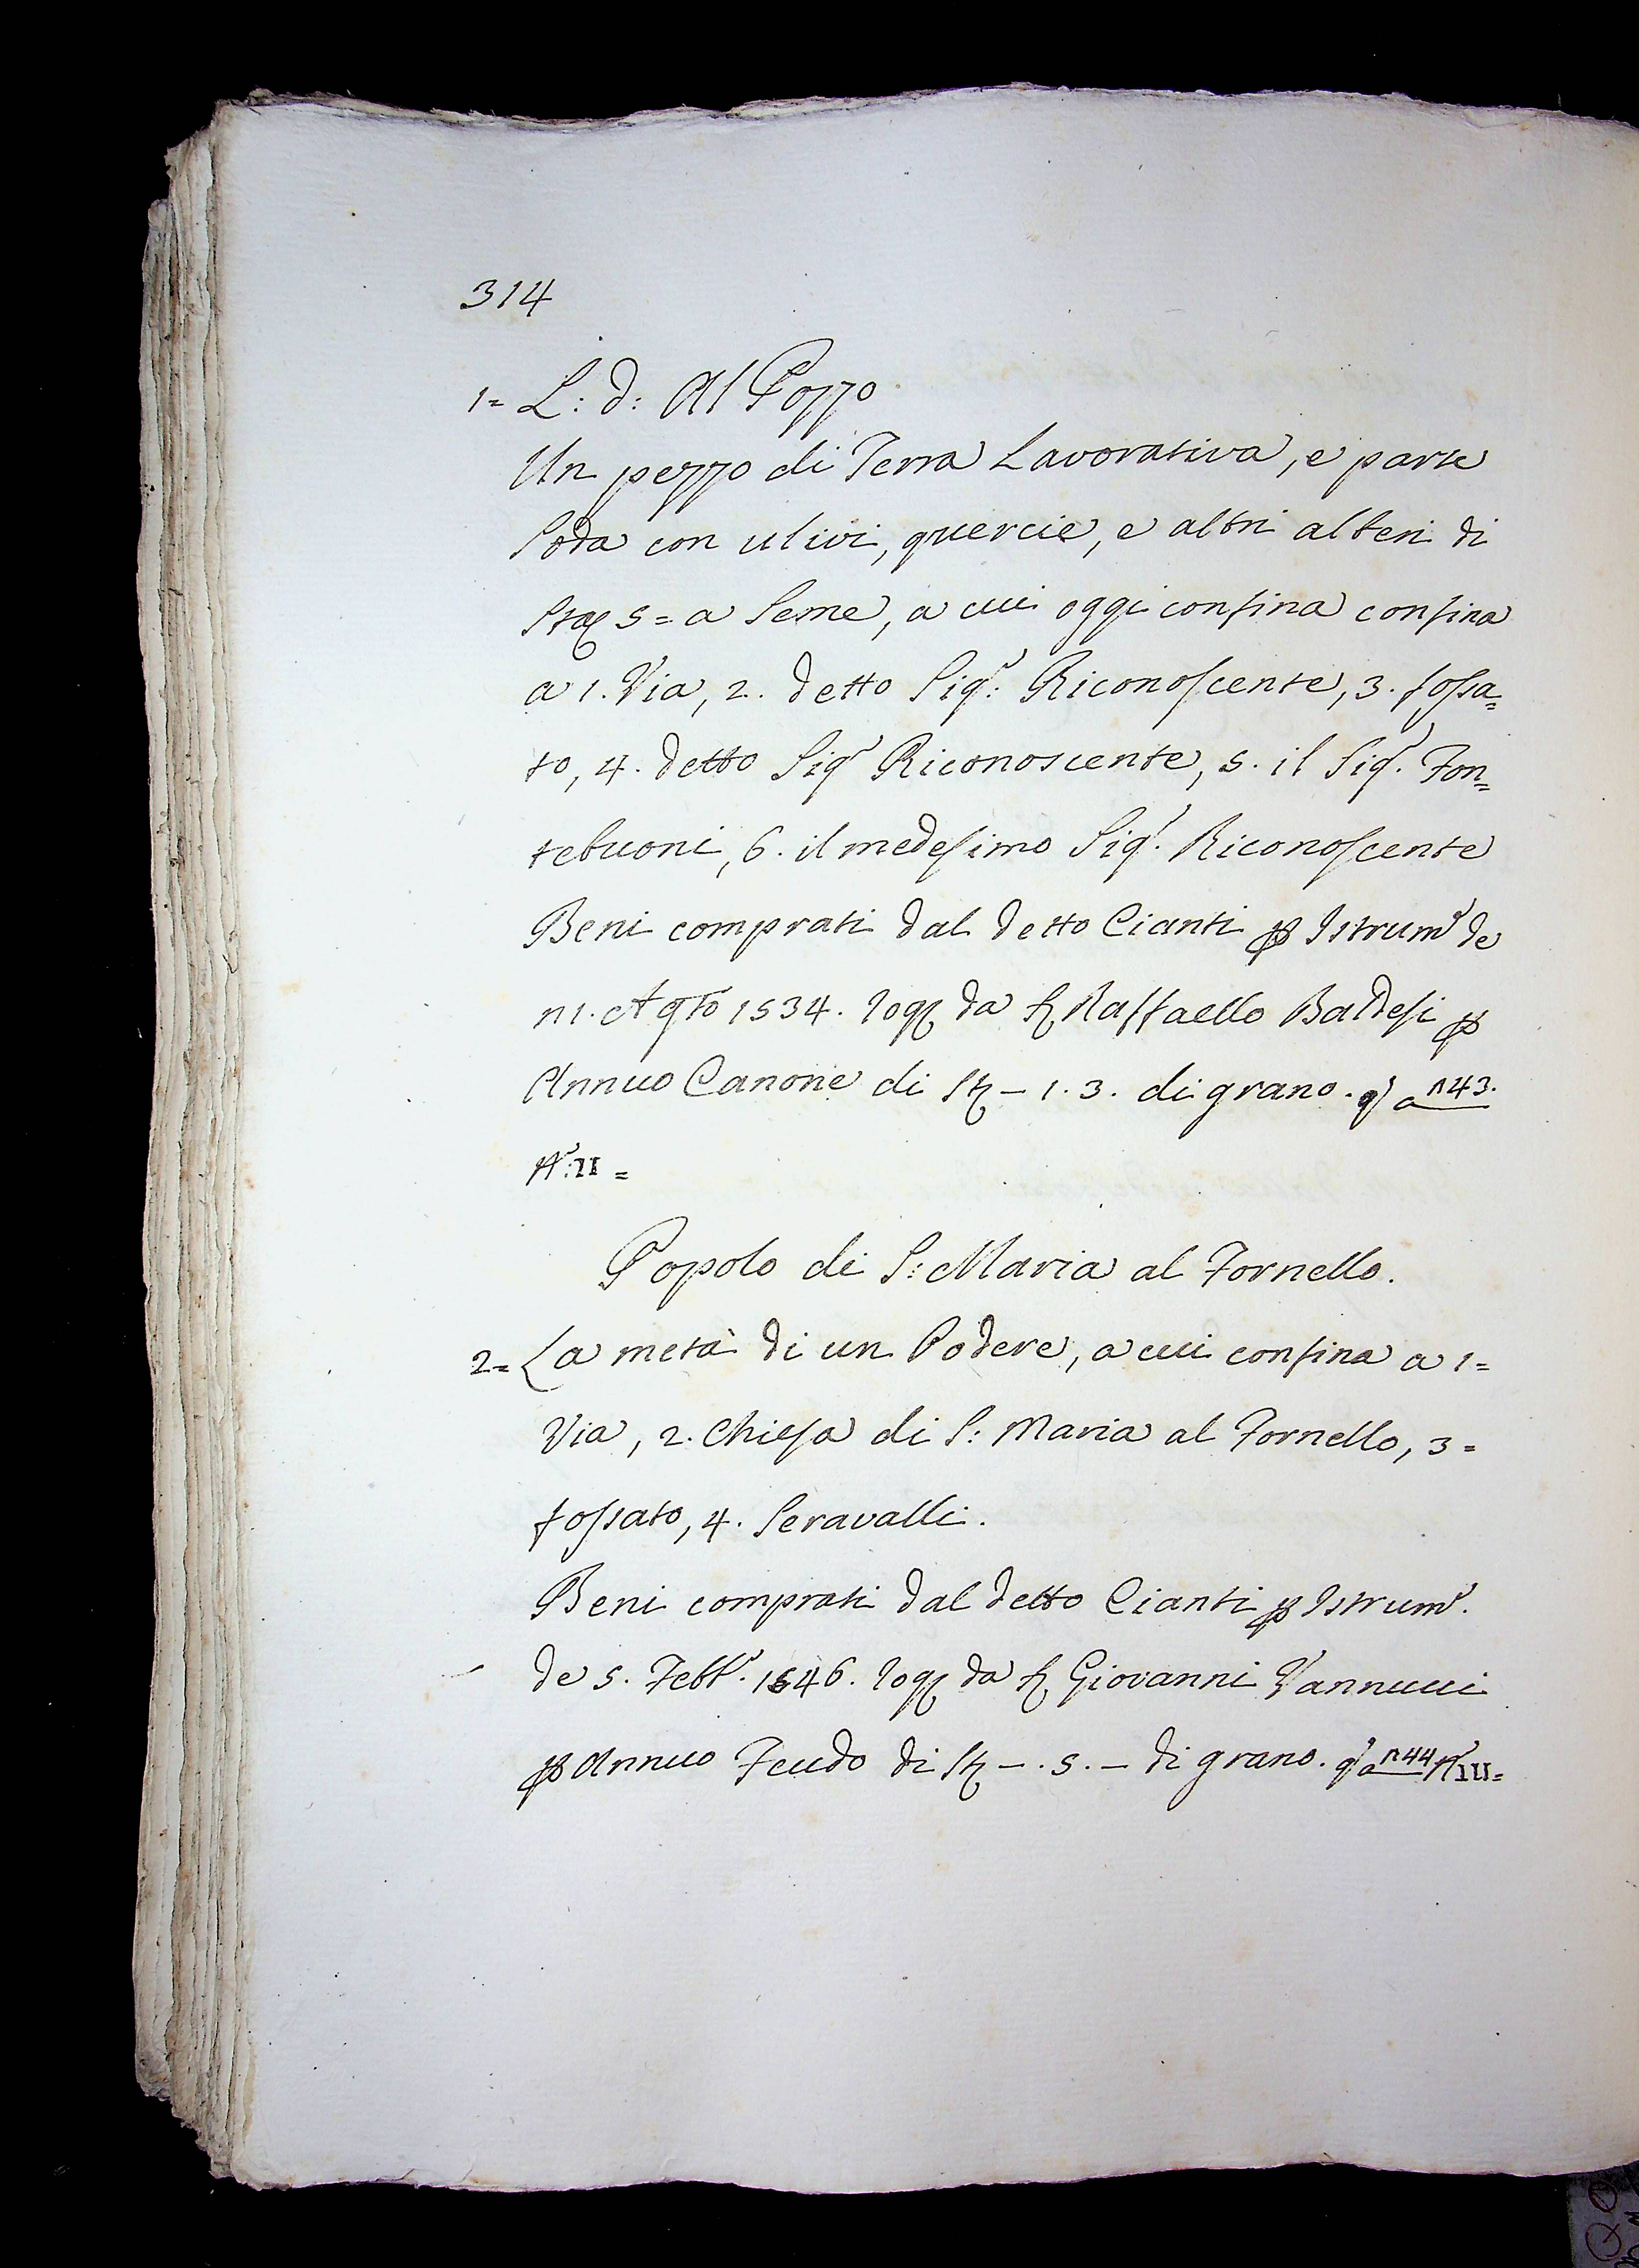 314
1= L: d: Al Pozzo
Un pezzo di Terra Lavorativa, e parte
Soda con ulivi, quercie, e altri alberi di
Sta 5= a Seme, a cui oggi confina confina
a 1. Via, 2. detto Sigr: Riconoscente, 3. fossa=
to, 4. detto Sigr Riconoscente, 5. il Sigr. Fon=
tebuoni, 6. il medesimo Sigr. Riconoscente
Beni comprati dal detto Cianti p Istrumo de
11. Agto 1534. rog da S Raffaello Baldesi p
Annuo Canone di St – 1. 3. di grano. qo a n43.
Ao: II =
Popolo di S: Maria al Fornello.
2= La metà di un Podere, a cui confina a 1=
Via, 2. Chiesa di S: Maria al Fornello, 3=
fossato, 4. Seravalli.
Beni comprati dal detto Cianti p Istrumo.
de 5. Febbo. 1546. rog da S Giovanni Vannucci
p Annuo Feudo di St – . 5. – di grano. qo a n44 Ao III=